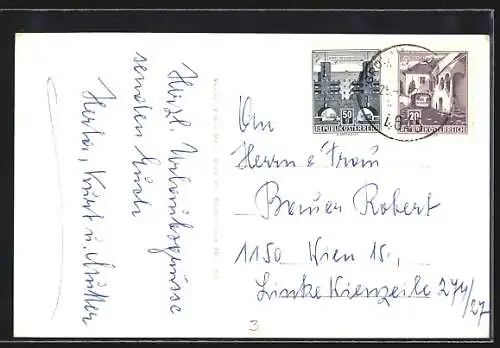 Herzl. Urlaubsgrüsse
senden Euch
Herta, Kurt u. Mutter
50
REPUBLIK ÖSTERREICH
20
REPUBLIK ÖSTERREICH
An
Herrn + Frau
Bauer Robert
1150 Wien 15.,
Linke Wienzeile 274/27
3